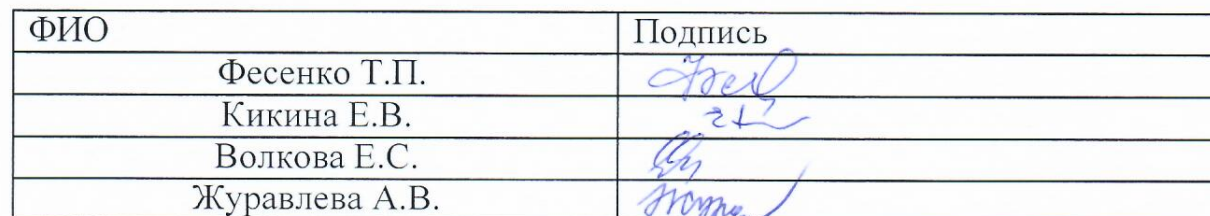 ФИО Подпись
Фесенко Т.П.
Кикина Е.В.
Волкова Е.С.
Журавлева А.В.